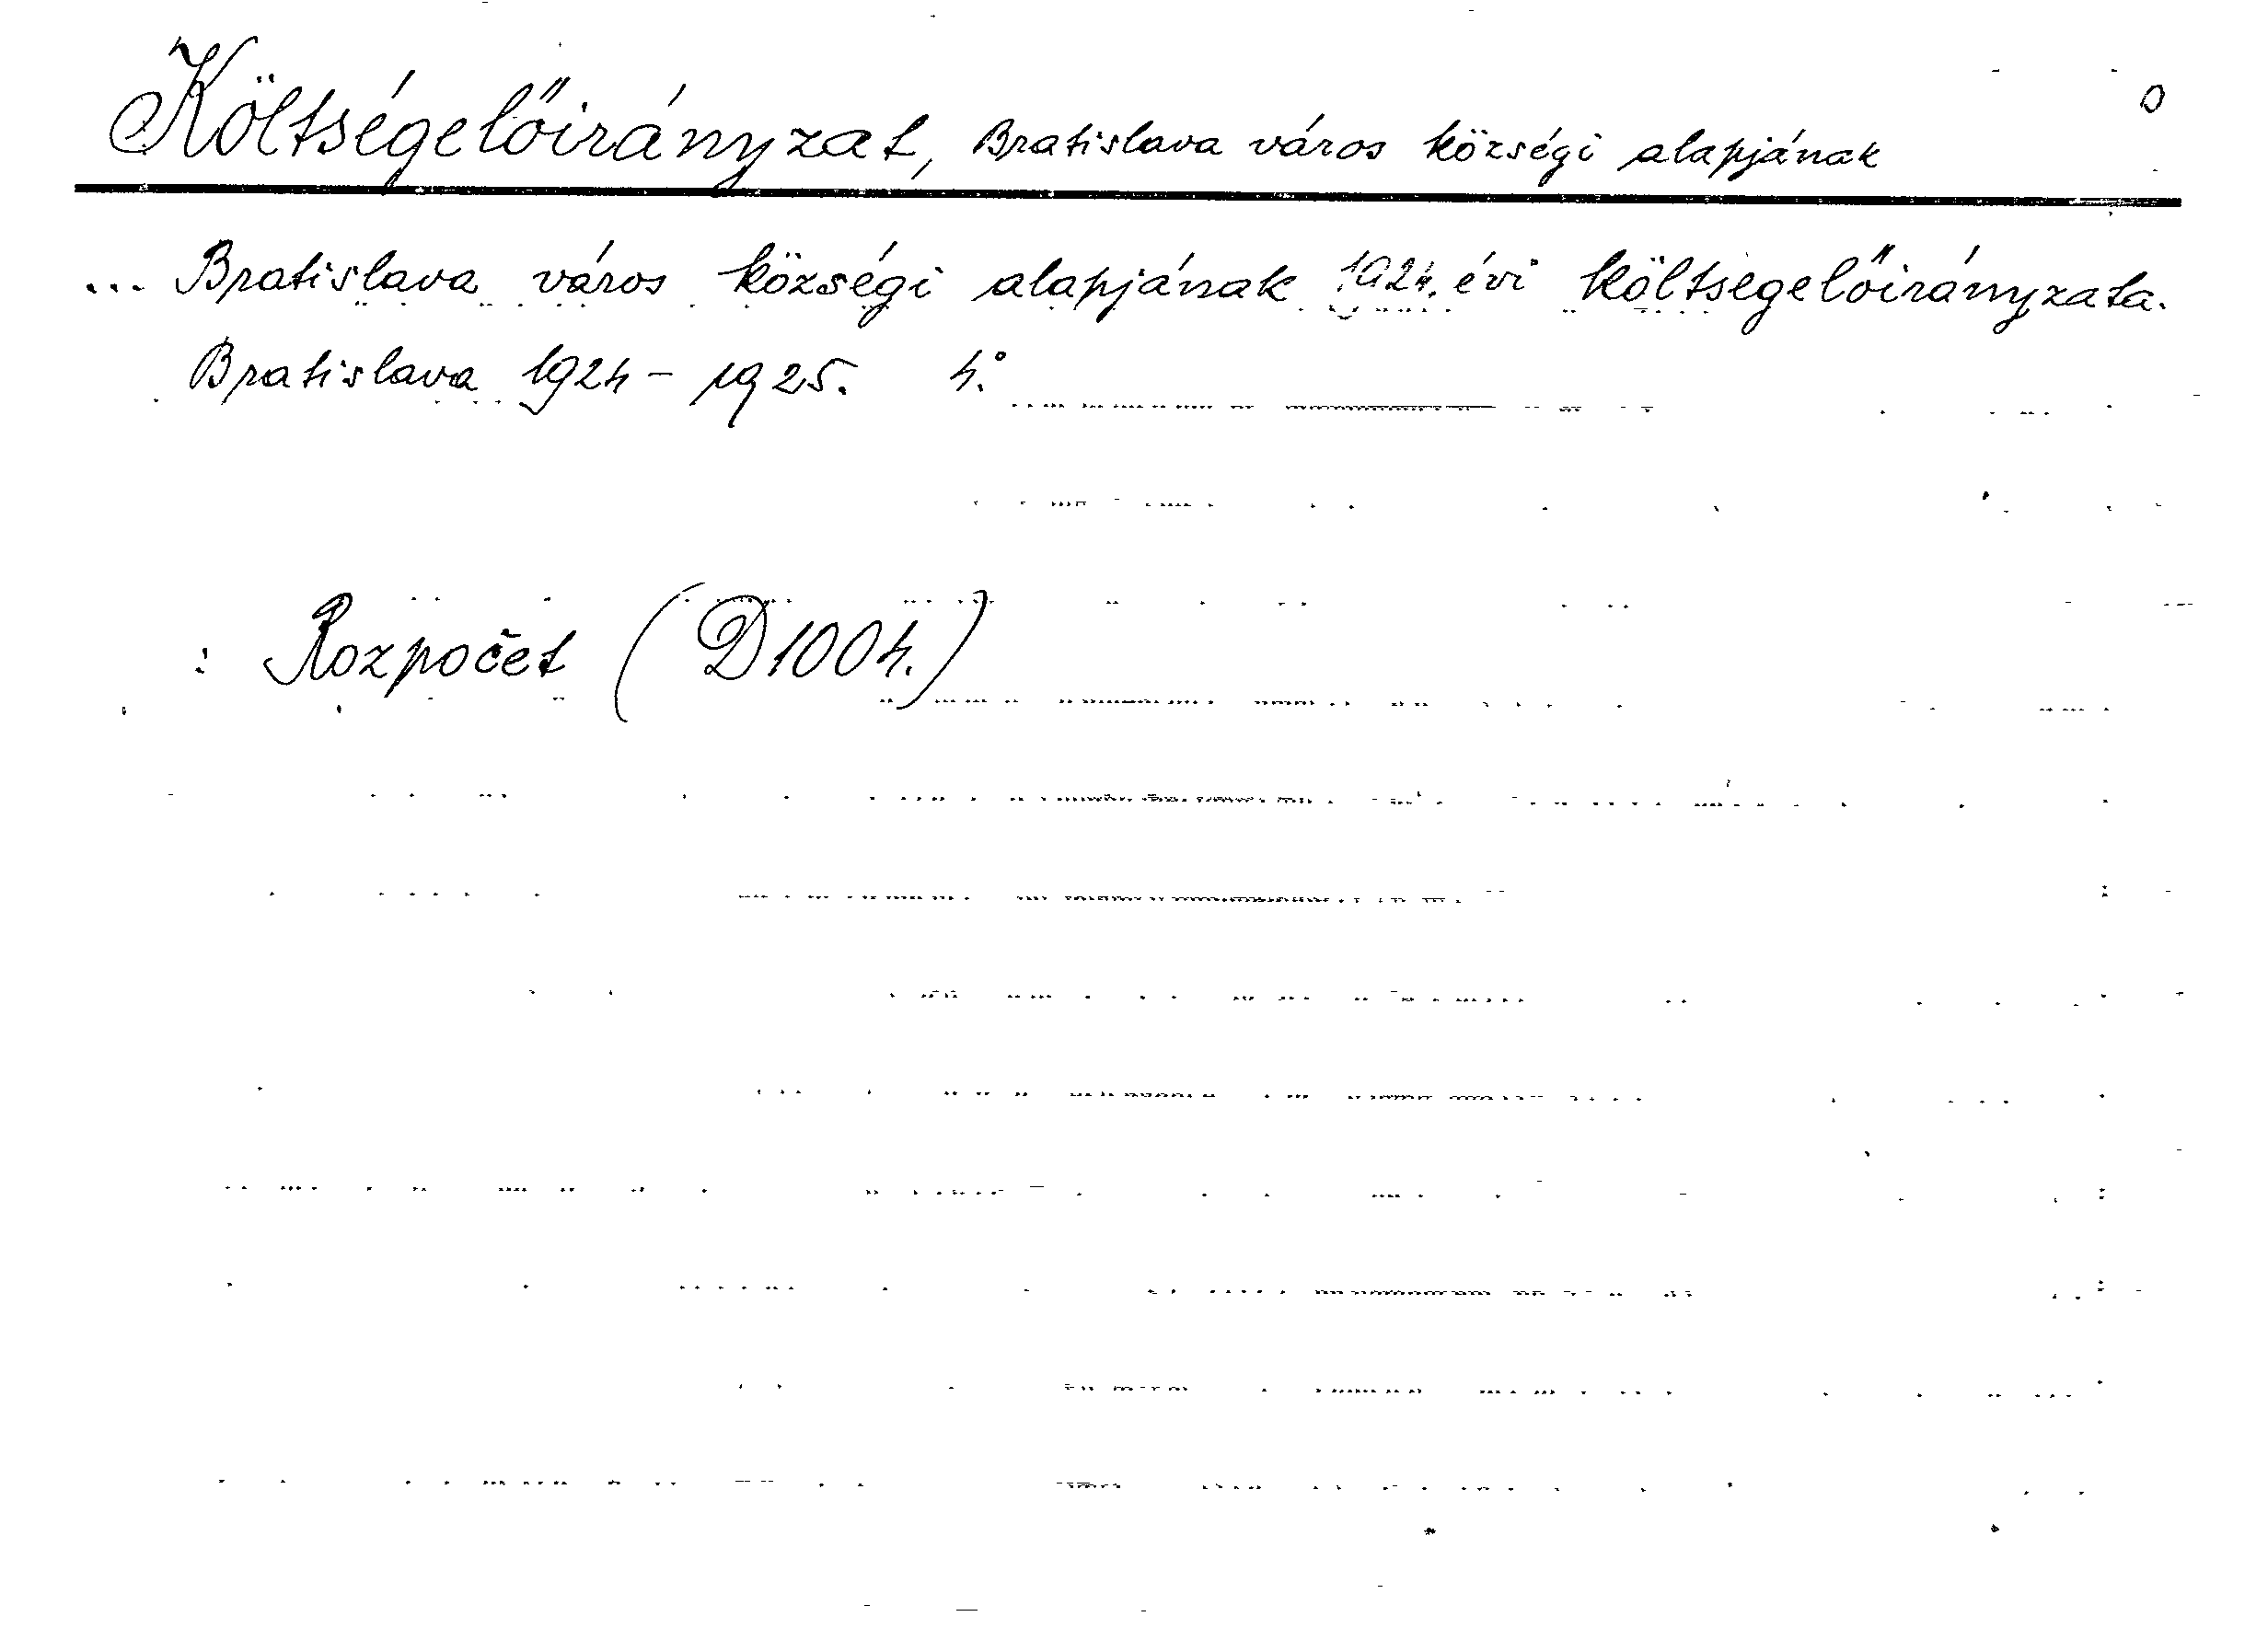 Költségelőirányzat, Bratislava város községi alapjának
... Bratislava város községi alapjának 1924. évi költségelőirányzata.
Bratislava 1924 - 1925. 4°.
: Rozpočet (D1004.)